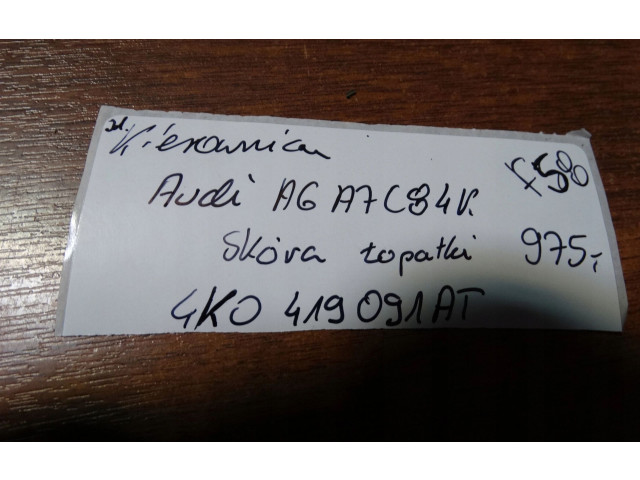 Kierownica
Audi A6 A7 C8 4K
F58
Skóra łopatki 975,-
4K0 419 091 AT